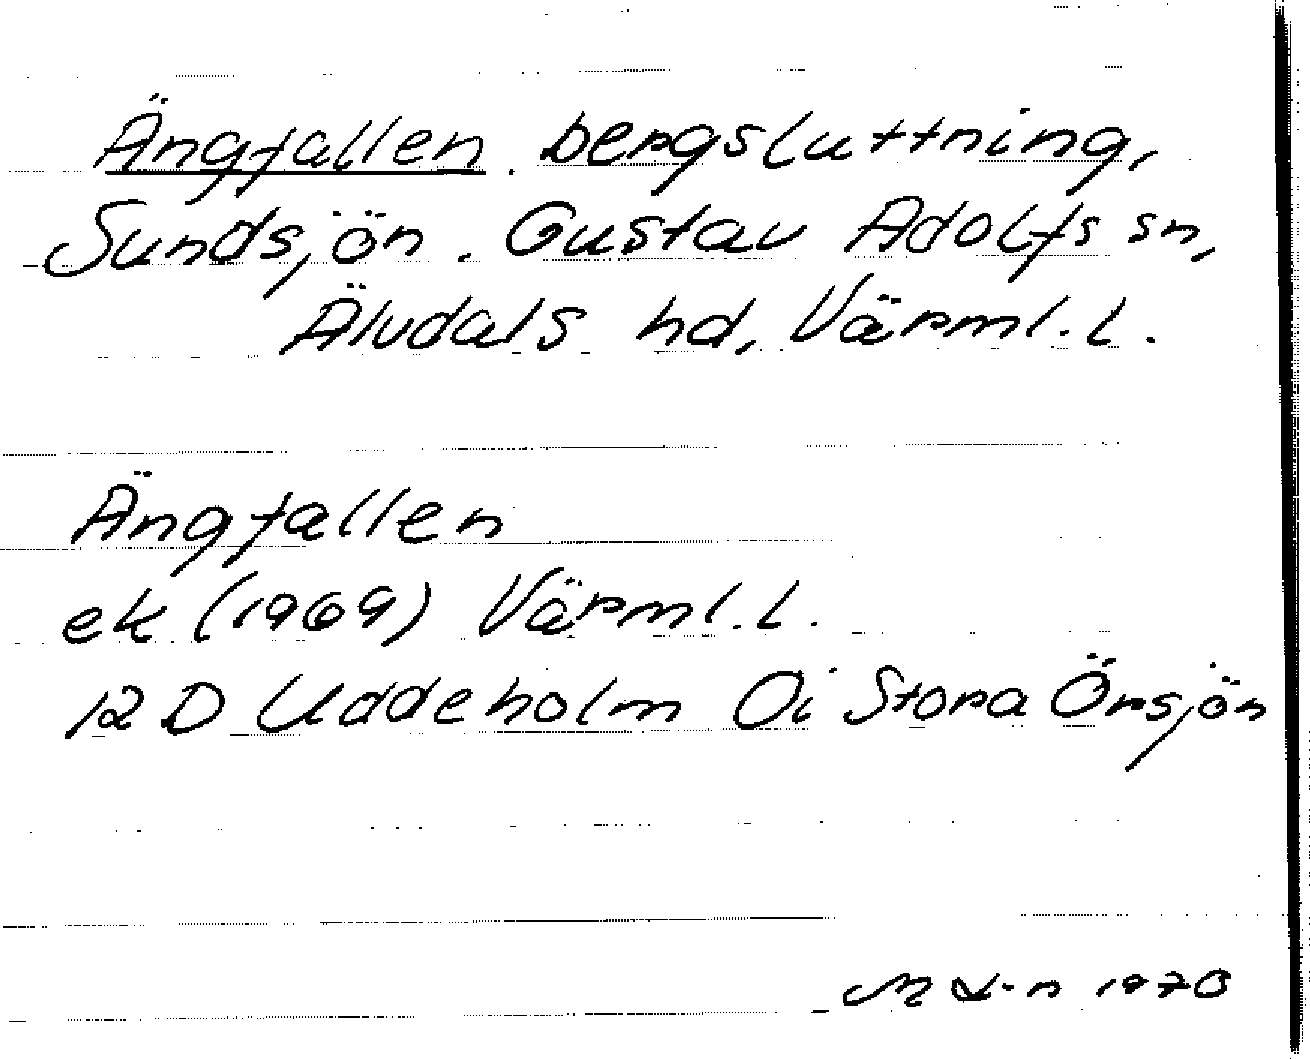 Ängfallen. bergsluttning,
Sundsjön. Gustav Adolfs sn,
Älvdals hd, Värml. l.
Ängfallen
ek (1969) Värml. l.
12 D Uddeholm 0i Stora Örsjön
1970